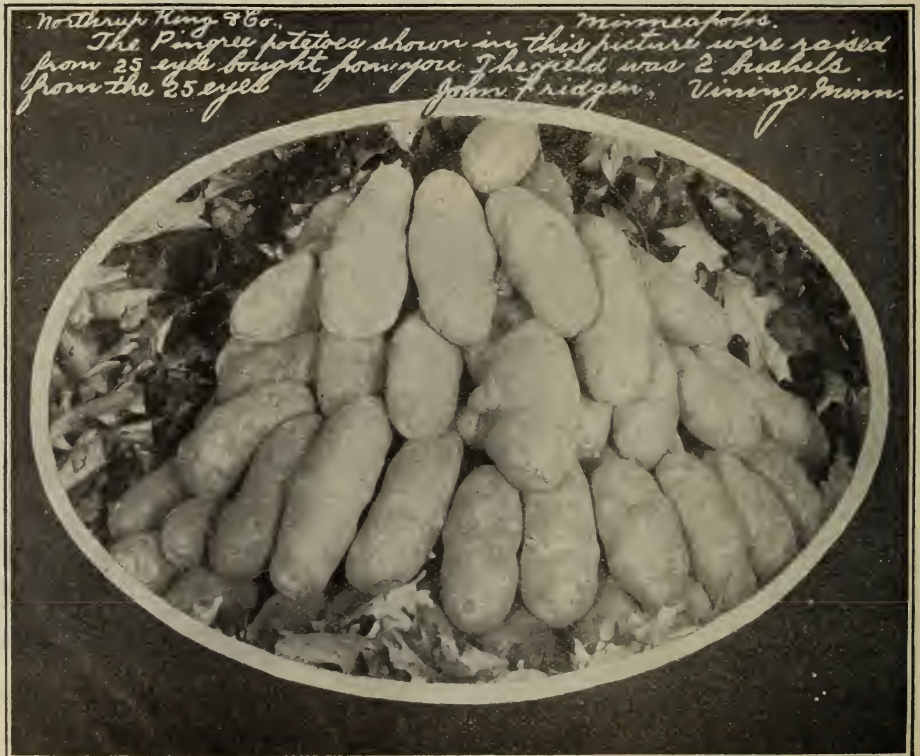 Northrup King & Co., Minneapolis.
The Pingree potetoes shown in this picture were raised
from 25 eyes bought from you. The yield was 2 bushels
from the 25 eyes John Fridgen, Vining Minn.